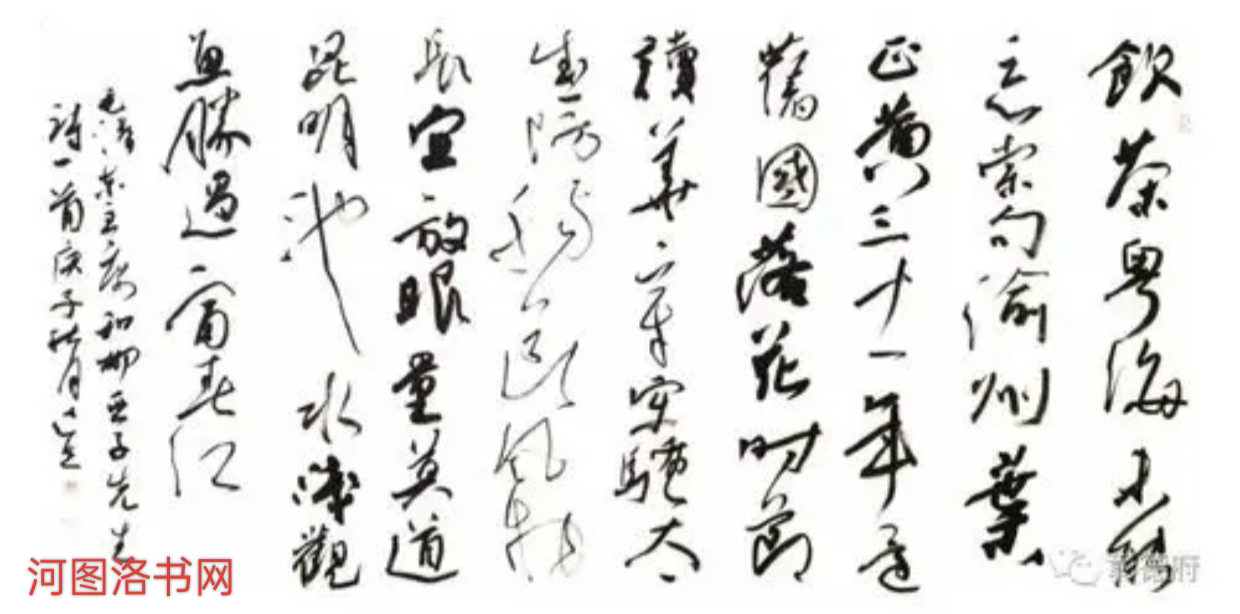 飲茶粵海未能
忘索句渝州葉
正黃三十一年還
舊國落花時節
讀華章牢騷太
盛防腸斷風物
長宜放眼量莫道
昆明池水淺觀
魚勝過富春江
毛澤東主席和柳亞子先生
詩一首庚子秋月
河图洛书网